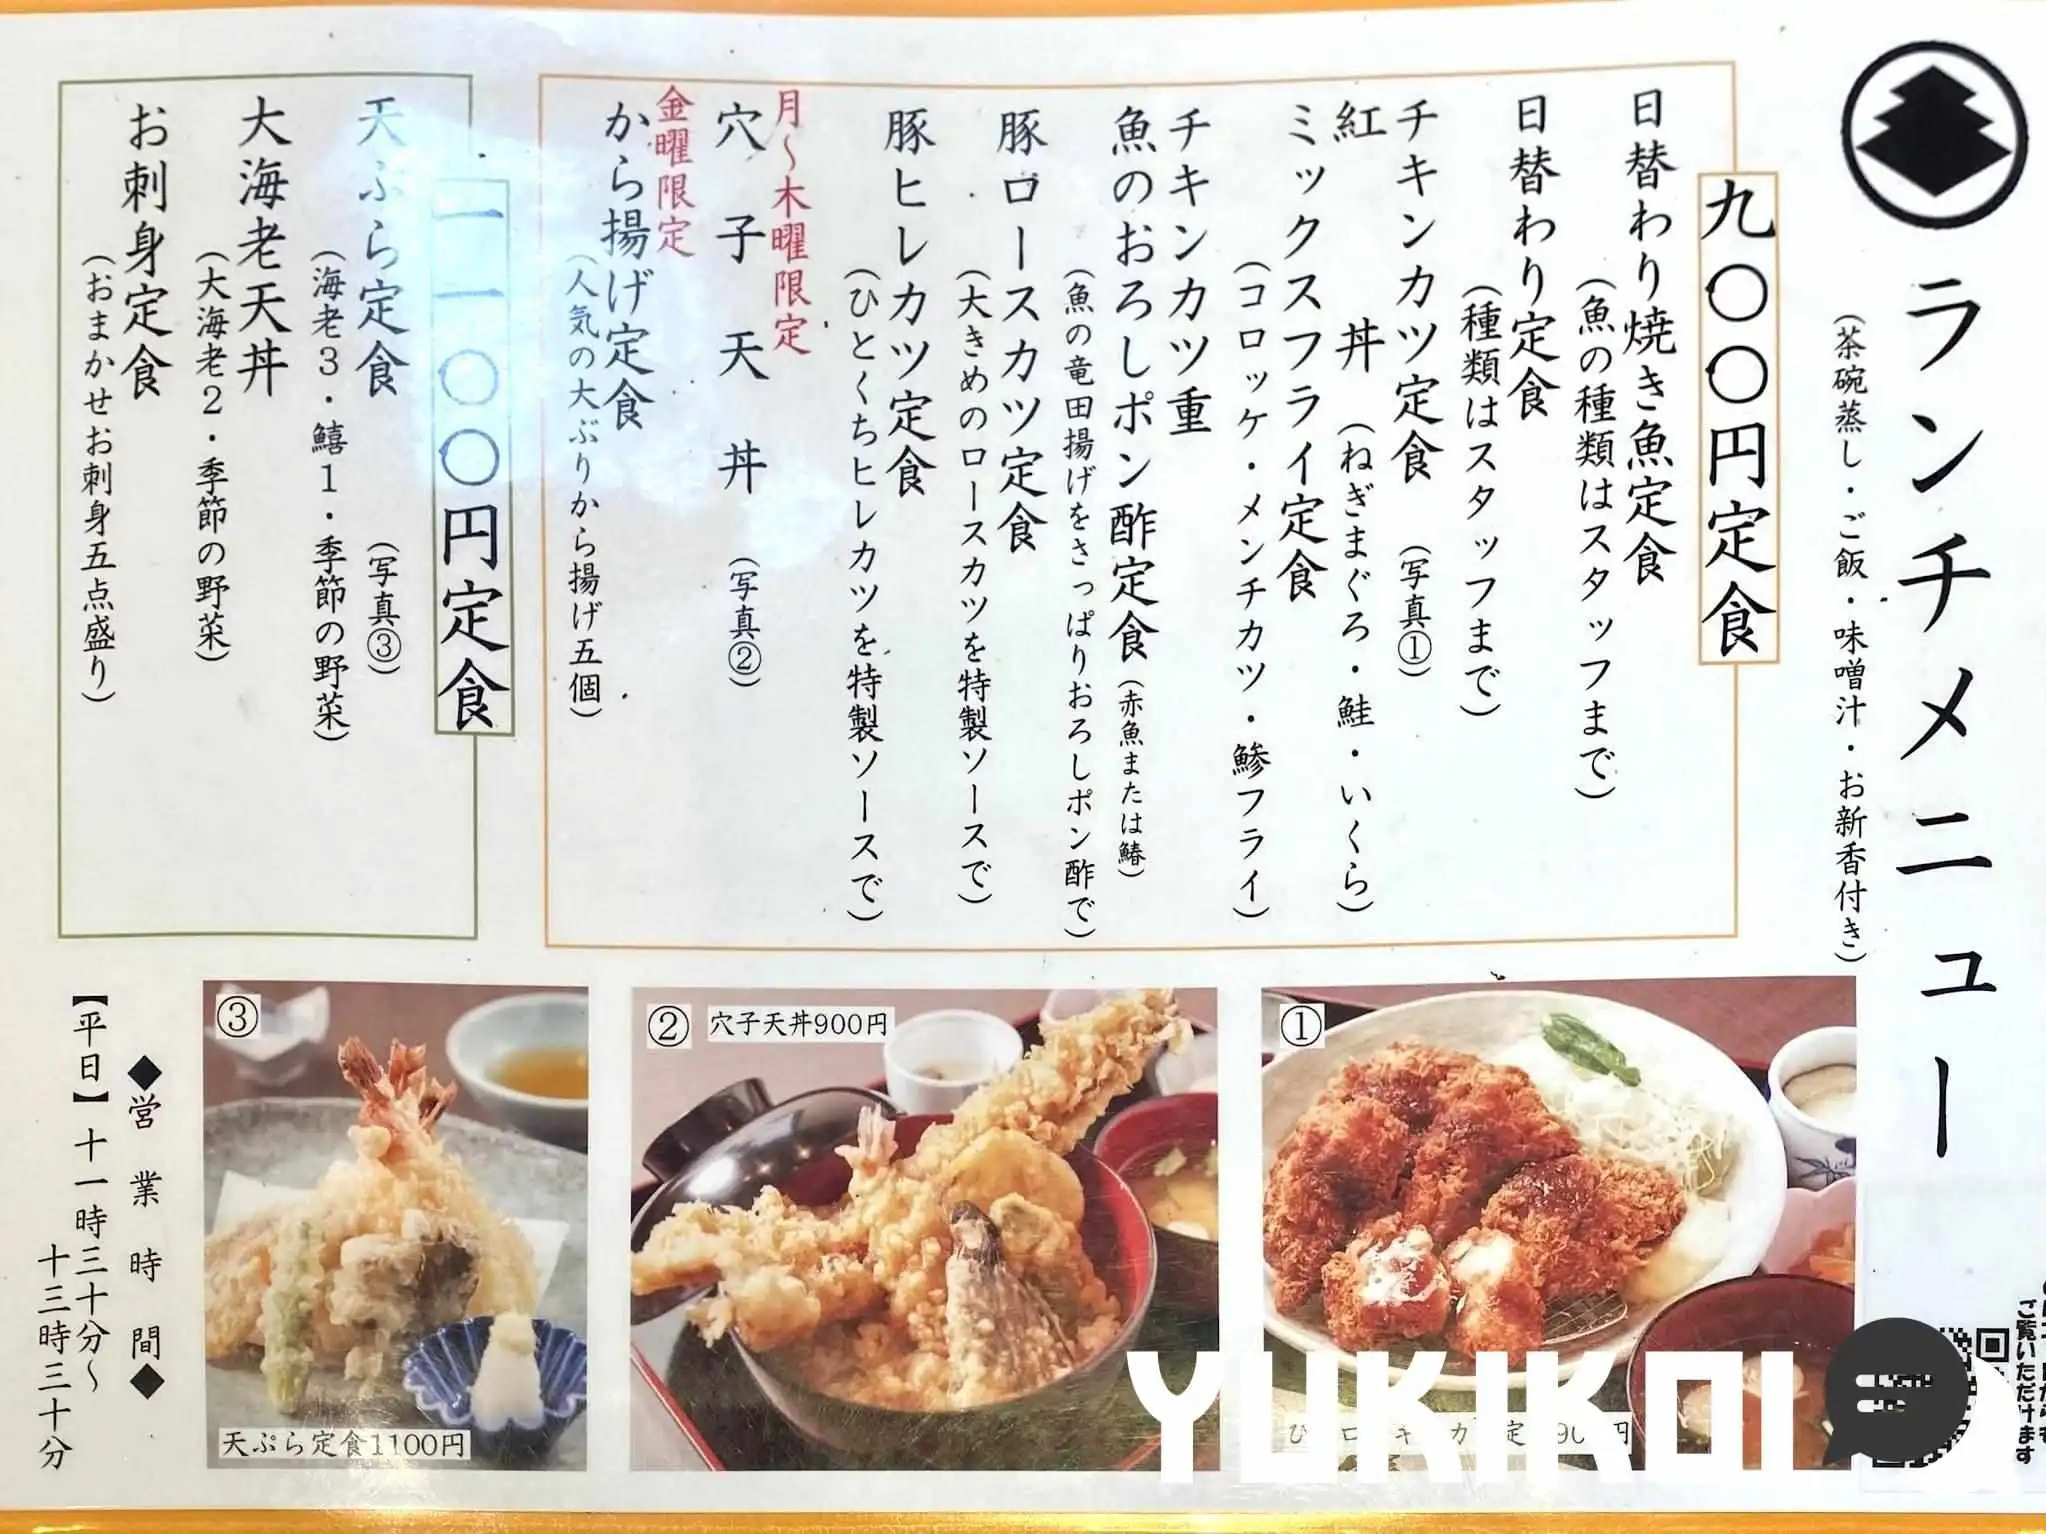 ランチメニュー
（茶碗蒸し・ご飯・味噌汁・お新香付き）
九〇〇円定食
日替わり焼き魚定食
（魚の種類はスタッフまで）
日替わり定食
（種類はスタッフまで）
チキンカツ定食（写真①）
紅丼（ねぎまぐろ・鮭・いくら）
ミックスフライ定食
（コロッケ・メンチカツ・鯵フライ）
チキンカツ重
魚のおろしポン酢定食（赤魚または鰆）
（魚の竜田揚げをさっぱりおろしポン酢で）
豚ロースカツ定食
（大きめのロースカツを特製ソースで）
豚ヒレカツ定食
（ひとくちヒレカツを特製ソースで）
月〜木曜限定
穴子天丼（写真②）
金曜限定
から揚げ定食
（人気の大ぶりから揚げ五個）
一一〇〇円定食
天ぷら定食（写真③）
（海老3・鱚1・季節の野菜）
大海老天丼
（大海老2・季節の野菜）
お刺身定食
（おまかせお刺身五点盛り）
①
②
穴子天丼900円
③
天ぷら定食1100円
◆営業時間◆
【平日】十一時三十分〜
十三時三十分
ご覧いただけます
YUKIKOI